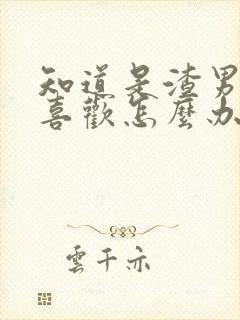 知道是渣男
喜歡怎麼办
雲千亦